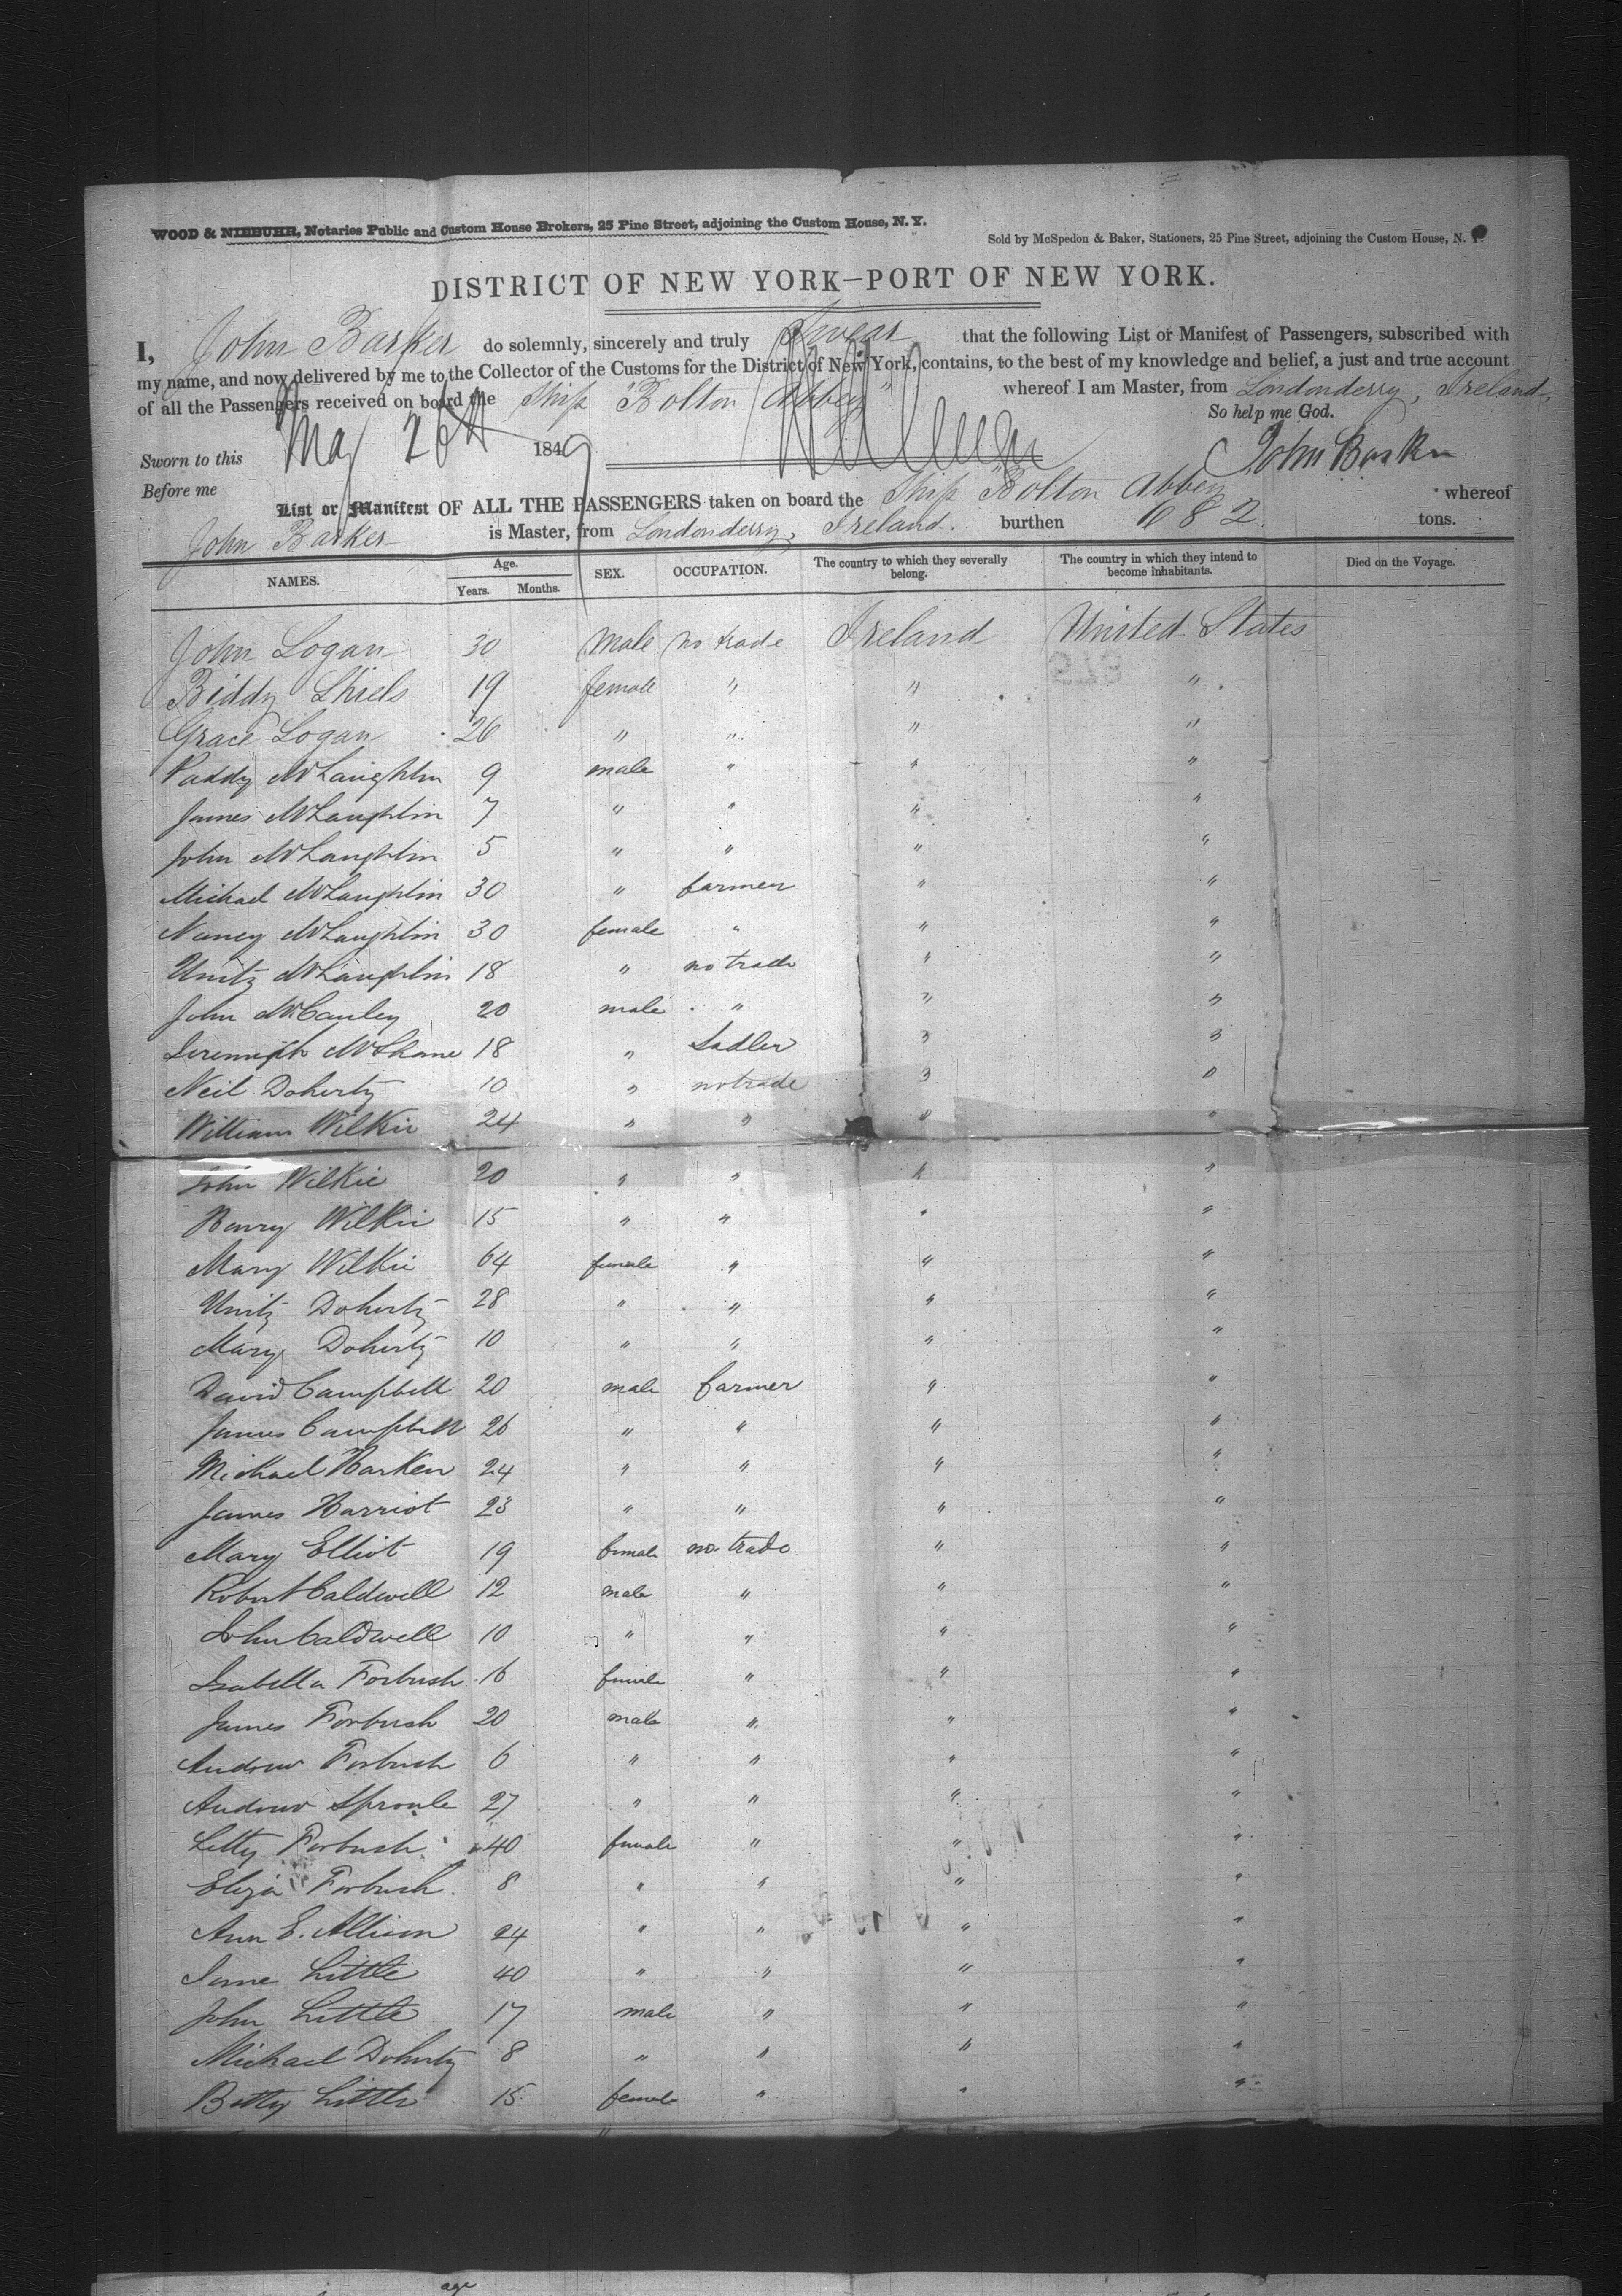 WOOD & NIEBUHR, Notaries Public and Custom House Brokers, 25 Pine Street, adjoining the Custom House, N. Y.
Sold by McSpedon & Baker, Stationers, 25 Pine Street, adjoining the Custom House, N. Y.
DISTRICT OF NEW YORK—PORT OF NEW YORK.
I, John Barker do solemnly, sincerely and truly Swear that the following List or Manifest of Passengers, subscribed with
my name, and now delivered by me to the Collector of the Customs for the District of New York, contains, to the best of my knowledge and belief, a just and true account
of all the Passengers received on board the Ship "Bolton Abbey" whereof I am Master, from Londonderry, Ireland,
So help me God.
Sworn to this May 26th 1849
John Barker
Before me
List or Manifest OF ALL THE PASSENGERS taken on board the Ship Bolton Abbey whereof
John Barker is Master, from Londonderry, Ireland. burthen 682. tons.
NAMES. Age. Years. Months. SEX. OCCUPATION. The country to which they severally belong. The country in which they intend to become inhabitants. Died on the Voyage.
John Logan 30 Male no trade Ireland United States
Biddy Shiels 19 female " " "
Grace Logan 26 " " " "
Paddy McLaughlin 9 male " " "
James McLaughlin 7 " " " "
John McLaughlin 5 " " " "
Michael McLaughlin 30 " farmer " "
Nancy McLaughlin 30 female " " "
Unity McLaughlin 18 " no trade " "
John McCauley 20 male " " "
Jeremiah McShane 18 " Sadler " "
Neil Doherty 10 " no trade " "
William Wilkie 24 " " " "
John Wilkie 20 " " " "
Henry Wilkie 15 " " " "
Mary Wilkie 64 female " " "
Unity Doherty 28 " " " "
Mary Doherty 10 " " " "
David Campbell 20 male farmer " "
James Campbell 26 " " " "
Michael Harken 24 " " " "
James Harriot 23 " " " "
Mary Elliot 19 female no trade " "
Robert Caldwell 12 male " " "
John Caldwell 10 " " " "
Isabella Forbush 16 female " " "
James Forbush 20 male " " "
Andrew Forbush 6 " " " "
Andrew Sproule 27 " " " "
Letty Forbush 40 female " " "
Eliza Forbush 8 " " " "
Ann E. Allison 24 " " " "
Jane Little 40 " " " "
John Little 17 male " " "
Michael Doherty 8 " " " "
Betty Little 15 female " " "
age